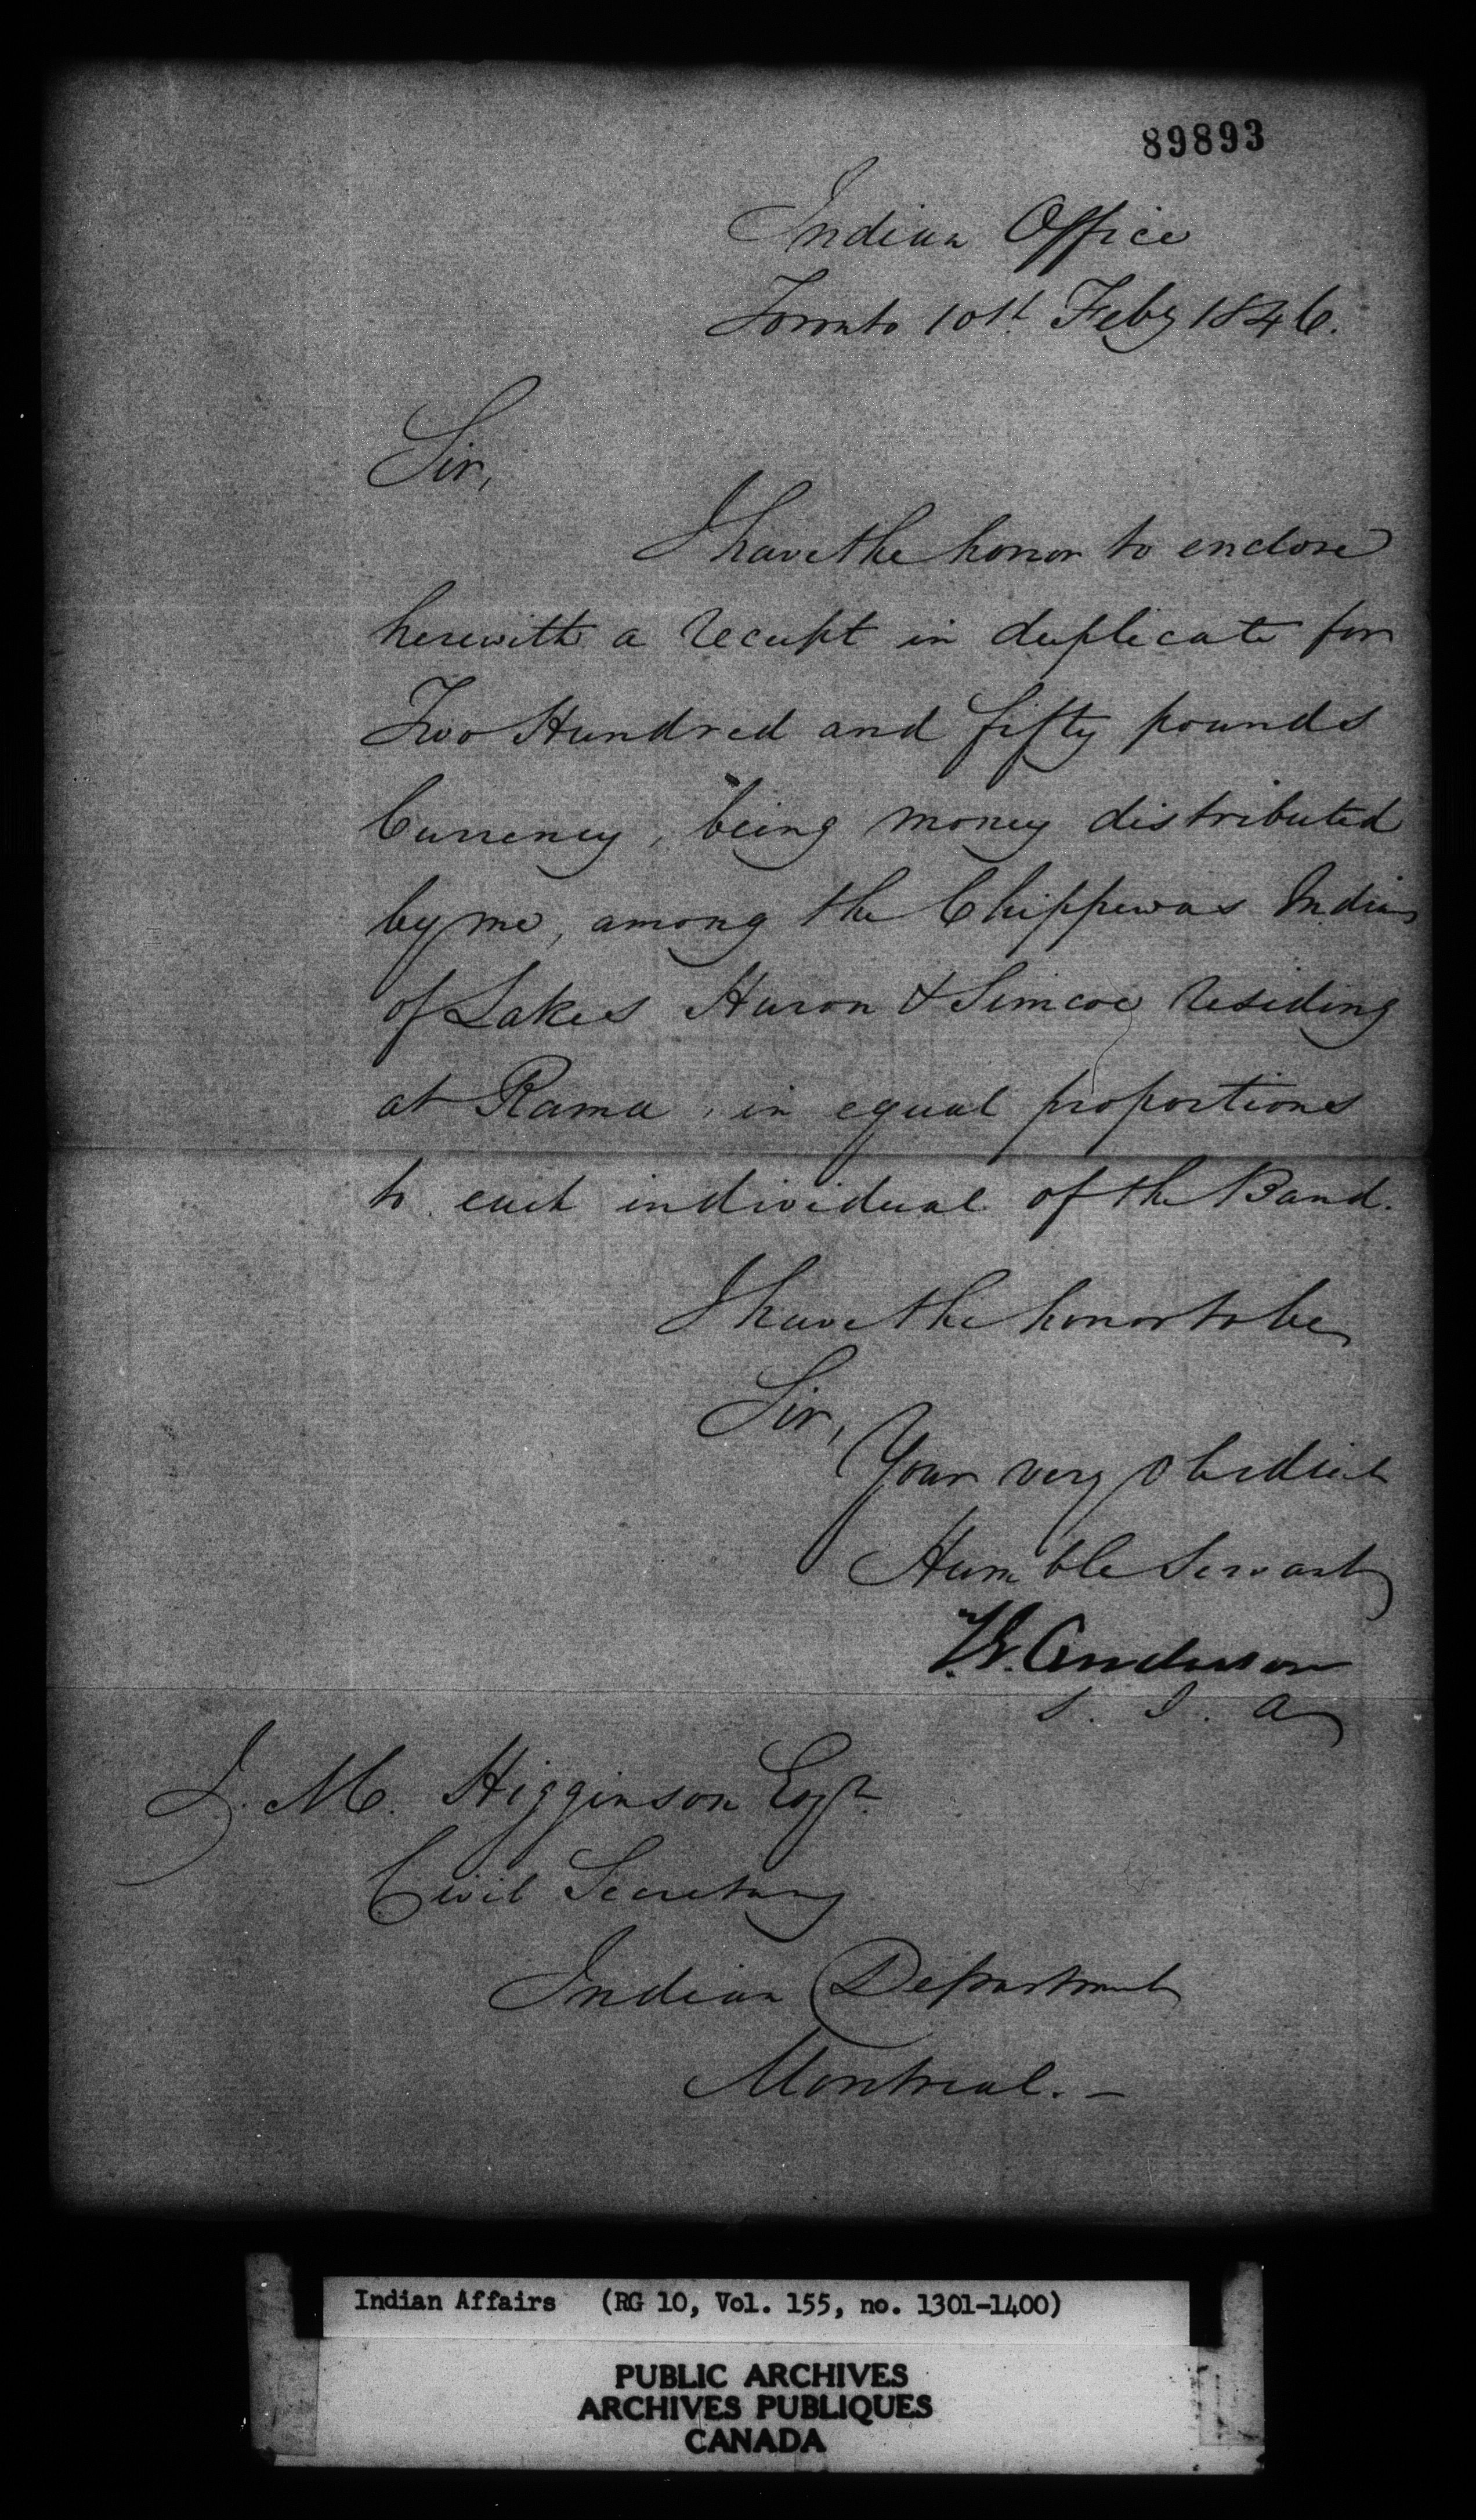 89893
Indian Office
Toronto 10th Feby 1846.
Sir,
I have the honor to enclose
herewith a receipt in duplicate for
Two Hundred and fifty pounds
Currency, being money distributed
by me, among the Chippewas Indians
of Lakes Huron & Simcoe residing
at Rama, in equal proportions
to each individual of the Band.
I have the honor to be
Sir,
Your very obedient
Humble Servant
T.G. Anderson
S. I. A
J. M. Higginson Esqr
Civil Secretary
Indian Department
Montreal. -
Indian Affairs (RG 10, Vol. 155, no. 1301-1400)
PUBLIC ARCHIVES
ARCHIVES PUBLIQUES
CANADA